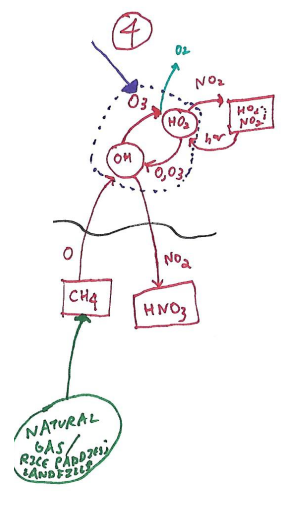 4
O2
O3
NO2
HO2
HO2;
NO2
hν
OH
O,O3
O
NO2
CH4
HNO3
NATURAL
GAS/
RICE PADDIES;
LANDFILLS